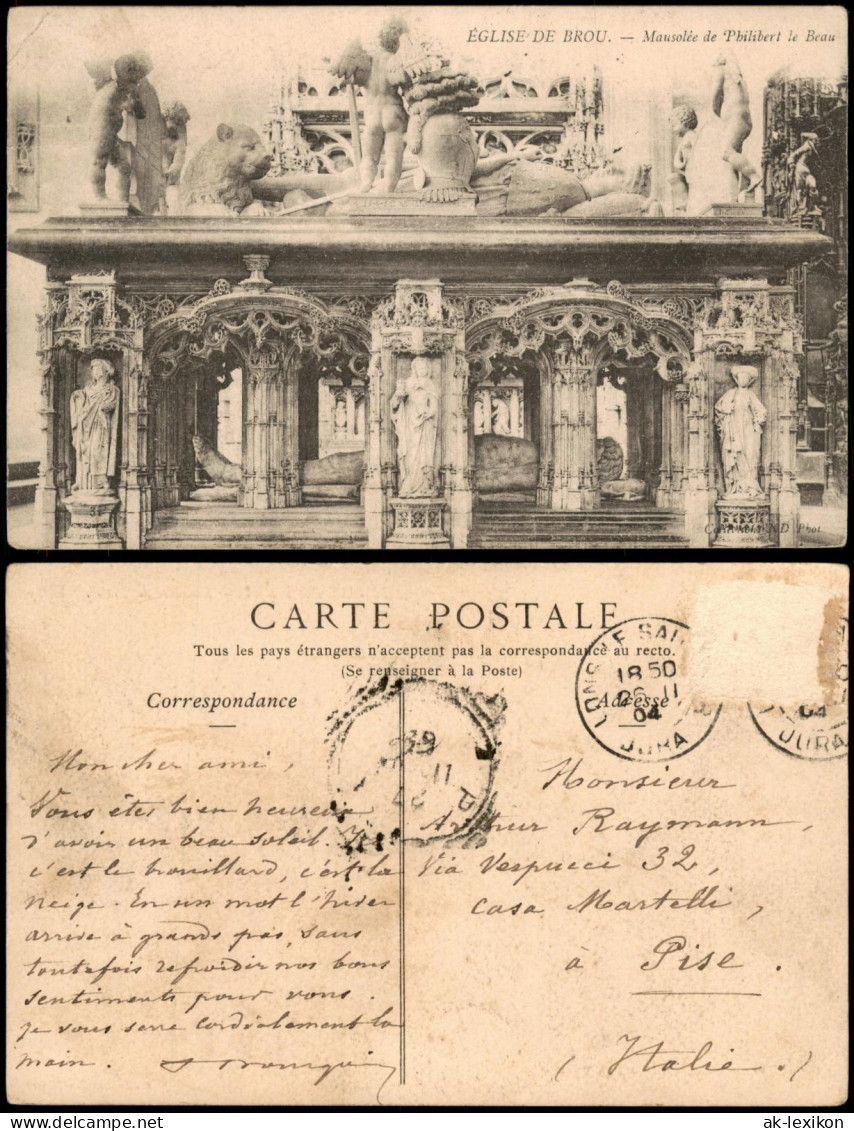 ÉGLISE DE BROU. — Mausolée de Philibert le Beau
ND Phot.
CARTE POSTALE
Tous les pays étrangers n'acceptent pas la correspondance au recto.
(Se renseigner à la Poste)
Correspondance
Adresse
LONS LE SAU
18 50
26 11
04
JURA
04
JURA
11
Mon cher ami,
Vous êtes bien heureux
d'avoir un beau soleil. Ici
c'est le brouillard, c'est la
neige. En un mot l'hiver
arrive à grands pas, sans
toutefois refroidir nos bons
sentiments pour vous.
Je vous serre cordialement la
main.
Monsieur
Arthur Raymann,
Via Vespucci 32,
Casa Martelli,
à Pise.
(Italie.)
ak-lexikon